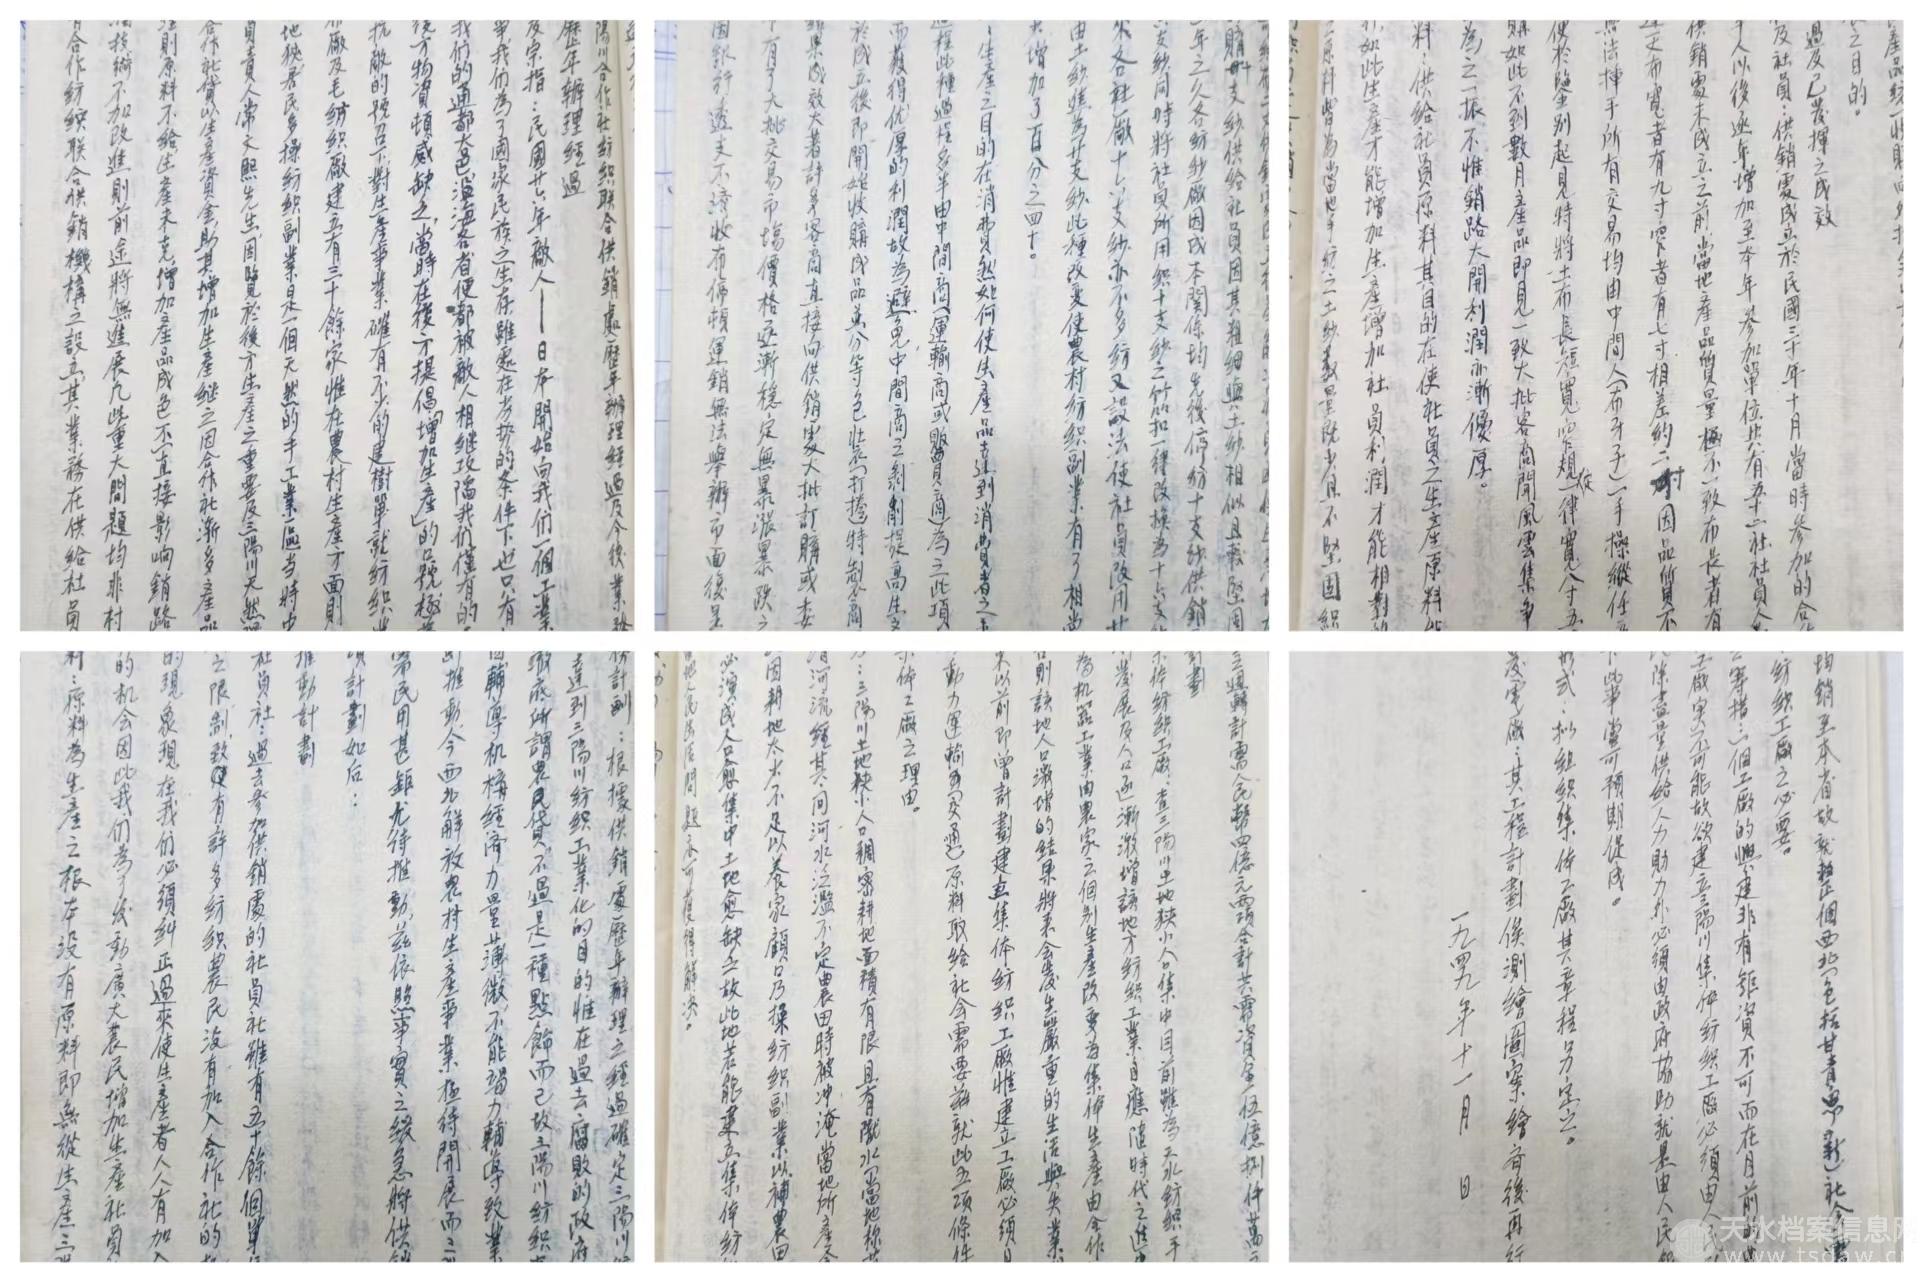 三陽川合作社紡織聯合供銷處歷年辦理經過及今後業務
歷年辦理經過
及宗指：民國廿六年敵人——日本開始向我們一個工業
爭我們為了國家民族之生存雖處在劣势的条件下也只有
我們的通都大邑濱海各省便都被敵人相继攻陷我們僅有的
後方物資頓感缺乏，當時在後方提倡「增加生產」的号
抗敵的號召下對生產事業確有不少的建樹單就紡織
布廠及毛紡織廠建立有三十餘家惟在農村生產方面則
地狹居民多操紡織副業是一個天然的手工業區当時
負責人常文熙先生因鑒於後方生產之重要及三陽川天然
合作社貸以生產資金助其增加生產继之因合作社渐多產品
則原料不給生產未克增加產品成色不直接影响銷路
技術不加改進則前途將無進展凡此重大問題均非村
合作紡織联合供銷機構之設立其業務在供給社員
支紗供给社員因其粗细與土紗相似且較堅固
年之久各紡紗廠因成本関係均先後停紡十支紗供銷
支紗同時將社員所用织十支紗之竹筘一律改换為十六支
各社廠十六支紗亦不多紡又設法使社員改用廿
由土紗進為廿支紗此種改变使農村紡織副業有了相當
大增加了百分之四十。
：生產之目的在消費员然如何使生產品去達到消費者之手
過程此種過程多半由中間商（運輸商或販賣商）為之此項
而獲得优厚的利潤故為避免中間商之剝削提高生
於成立後即開始收購成品並分等色壯裝打捲特製商
結果成效大著許多客商直接向供銷處大批訂購或委
有了大批交易市場價格逐漸穩定無暴漲暴跌之
因銀行透支不濟收布停頓運銷無法舉辦市面後呈
產品統一收購向外推銷
之目的。
過及已發揮之成效
及社員：供銷處成立於民國三十年十月當時參加的合
人以後逐年增加至本年參加單位共有五十二社社員人
供銷處未成立之前當地產品質量極不一致布長者有
丈布寬者有九寸窄者有七寸相差約二寸因品質不
無法插手所有交易均由中間人（布牙子）一手操縱任
便於鑒别起見特將土布長短寬窄規從一律寬八寸五
購如此不到數月產品即見一致大批客商聞風雲集爭
為之一振不惟銷路大開利潤亦漸優厚。
料：供給社員原料其目的在使社員之生產原料能
如此生產才能增加生產增加社員利潤才能相對的
原料皆為當地手紡之土紗数量既少且不堅固織
務計劃：根據供銷處歷年辦理之經過確定三陽川
達到三陽川紡织工業化的目的惟在過去腐敗的政府
徹底所謂農民貸不過是一種點飾而已故三陽川紡織
輔導机構經濟力量薄微不能竭力輔導致業
推動今西北解放農村生產事業極待開展而三
需民用甚鉅尤待推動兹依照事實之緩急將供銷
項計劃如后：
推動計劃
社員社：過去參加供銷處的社員社雖有五十餘個單位
之限制致使有許多紡织農民没有加入合作社的
的現象現在我們必須糾正過來使生產者人人有加入
的机会因此我們為了发動廣大農民增加生產社員
料：原料為生產之根本没有原料即無從生產三陽
週轉計需人民幣四億元兩項合計共需資金伍億捌仟萬
計劃
集体紡织工廠：查三陽川土地狭小人口集中目前雖為天水紡織手
發展及人口逐漸激增該地方紡织工業自應隨時代之進
為机器工業由農家之個别生產改变為集体生產由合作
否則該地人口激增的結果將來会發生嚴重的生活與失業
以前即曾計劃建立集体紡织工廠惟建立工廠必須
動力運輸交通原料取給社会需要兹就此五項條件
集体工廠之理由。
：三陽川土地狹小人口稠密耕地面積有限且有隴水（當地称
渭河流經其間河水泛濫不定農田時被冲淹當地所產
因耕地太少不足以養家顧口乃操紡织副業以補農田
必演成人口愈集中土地愈缺乏故此地若能建立集体紡
地人民生活問題亦可獲得解决。
均銷至本省故就整個西北（包括甘青寧新）社会需
紡織工廠之必要。
籌措：一個工廠的興建非有鉅資不可而在目前
工廠实不可能故欲建立三陽川集体紡织工廠必須由人民
除盡量供给人力助力外必須由政府協助就是由人民
此事當可預期促成。
形式：拟組織集体工廠其章程另定之。
發電廠：其工程計劃俟測繪圖案繪有後再行
一九四九年十一月 日
天水档案信息网
www.tsdaw.c